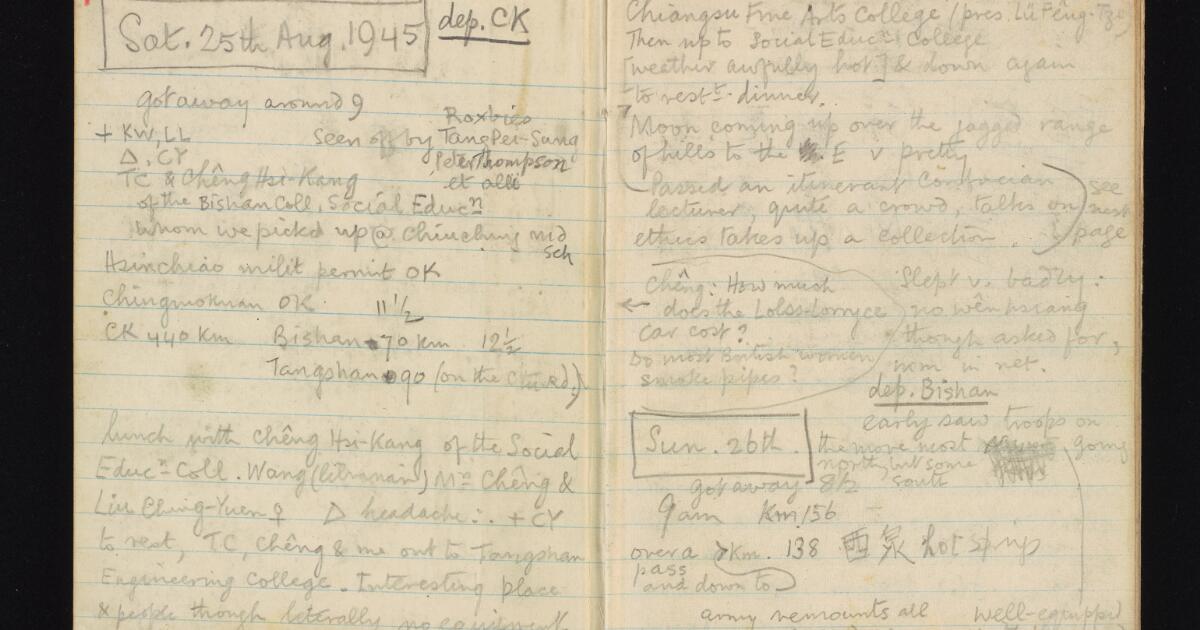 Sat. 25th Aug. 1945
dep. CK
got away around 9
+ KW, LL
Δ, CY
TC & Chêng Hsi-Kang
of the Bishan Coll. Social Educn
whom we picked up @ Chiuching mid
sch
seen off by
Roxbies
Tang Pei-Sung
Peter Thompson
et alii
Hsinchiao milit permit OK
Chingmokuan OK 11½
CK 440 Km Bishan 70 km 12½
Tangshan 90 (on the Rd.)
lunch with Chêng Hsi-Kang of the Social
Educn Coll. Wang (librarian) Mrs Chêng &
Liu Ching-Yuen ♀ Δ headache ∴ + CY
to rest, TC, Chêng & me out to Tangshan
Engineering College. Interesting place
& people though literally no equipment
Chiangsu Fine Arts College (pres. Lü Fêng-Tzu)
Then up to Social Educnl College
[weather awfully hot] & down again
to restt dinner.
Moon coming up over the jagged range
of hills to the E v pretty
Passed an itinerant Confucian
lecturer, quite a crowd, talks on
ethics takes up a collection.
see
next
page
Chêng: How much
does the Lolss-Lorryce
car cost?
Do most British women
smoke pipes?
Slept v. badly:
no wên hsiang
though asked for,
mom in net.
dep. Bishan
Sun. 26th.
early saw troops on
the move most going
north, but some
south
got away 8½
9am Km 156
over a
pass
and down to
Km. 138 hot spring
army remounts all well-equipped